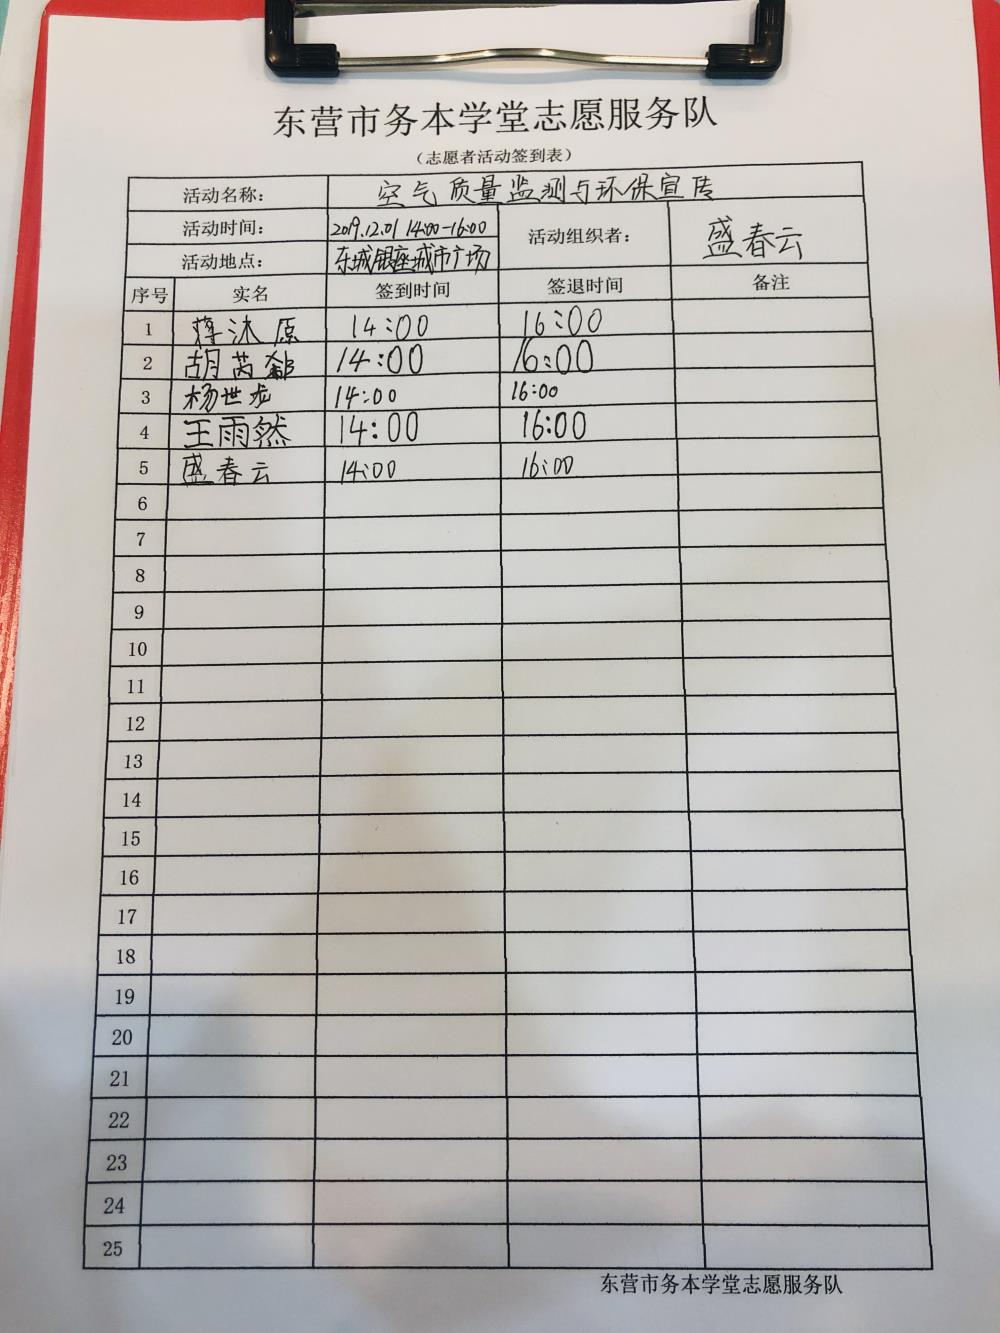 东营市务本学堂志愿服务队
（志愿者活动签到表）
活动名称： 空气质量监测与环保宣传
活动时间： 2019.12.01 14:00-16:00 活动组织者： 盛春云
活动地点： 东城银座城市广场
序号 实名 签到时间 签退时间 备注
1 蒋沐原 14:00 16:00
2 胡芮 14:00 16:00
3 杨世龙 14:00 16:00
4 王雨然 14:00 16:00
5 盛春云 14:00 16:00
6
7
8
9
10
11
12
13
14
15
16
17
18
19
20
21
22
23
24
25
东营市务本学堂志愿服务队